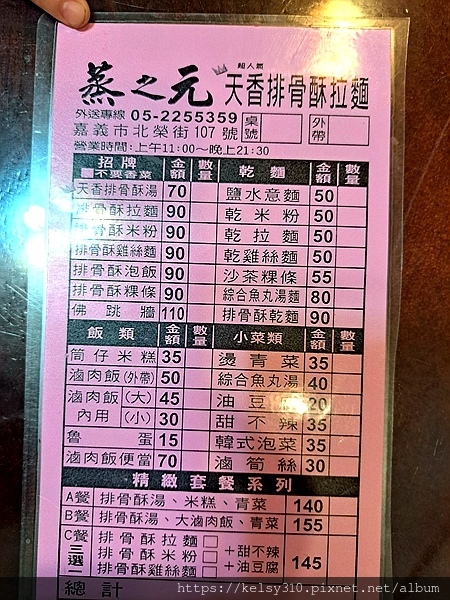 蒸之元
超人氣
天香排骨酥拉麵
外送專線 05-2255359
嘉義市北榮街107號
桌號
外帶
營業時間:上午11:00~晚上21:30
招牌 金額 數量
不要香菜
天香排骨酥湯 70
排骨酥拉麵 90
排骨酥米粉 90
排骨酥雞絲麵 90
排骨酥泡飯 90
排骨酥粿條 90
佛跳牆 110
乾麵 金額 數量
鹽水意麵 50
乾米粉 50
乾拉麵 50
乾雞絲麵 50
沙茶粿條 55
綜合魚丸湯麵 80
排骨酥乾麵 90
飯類 金額 數量
筒仔米糕 35
滷肉飯(外帶) 50
滷肉飯(大) 45
內用(小) 30
魯蛋 15
滷肉飯便當 70
小菜類 金額 數量
燙青菜 35
綜合魚丸湯 40
油豆腐 20
甜不辣 35
韓式泡菜 35
滷筍絲 30
精緻套餐系列
A餐 排骨酥湯、米糕、青菜 140
B餐 排骨酥湯、大滷肉飯、青菜 155
C餐 三選一
排骨酥拉麵
排骨酥米粉
排骨酥雞絲麵
+甜不辣
+油豆腐
145
總計
https://kelsy310.pixnet.net/album